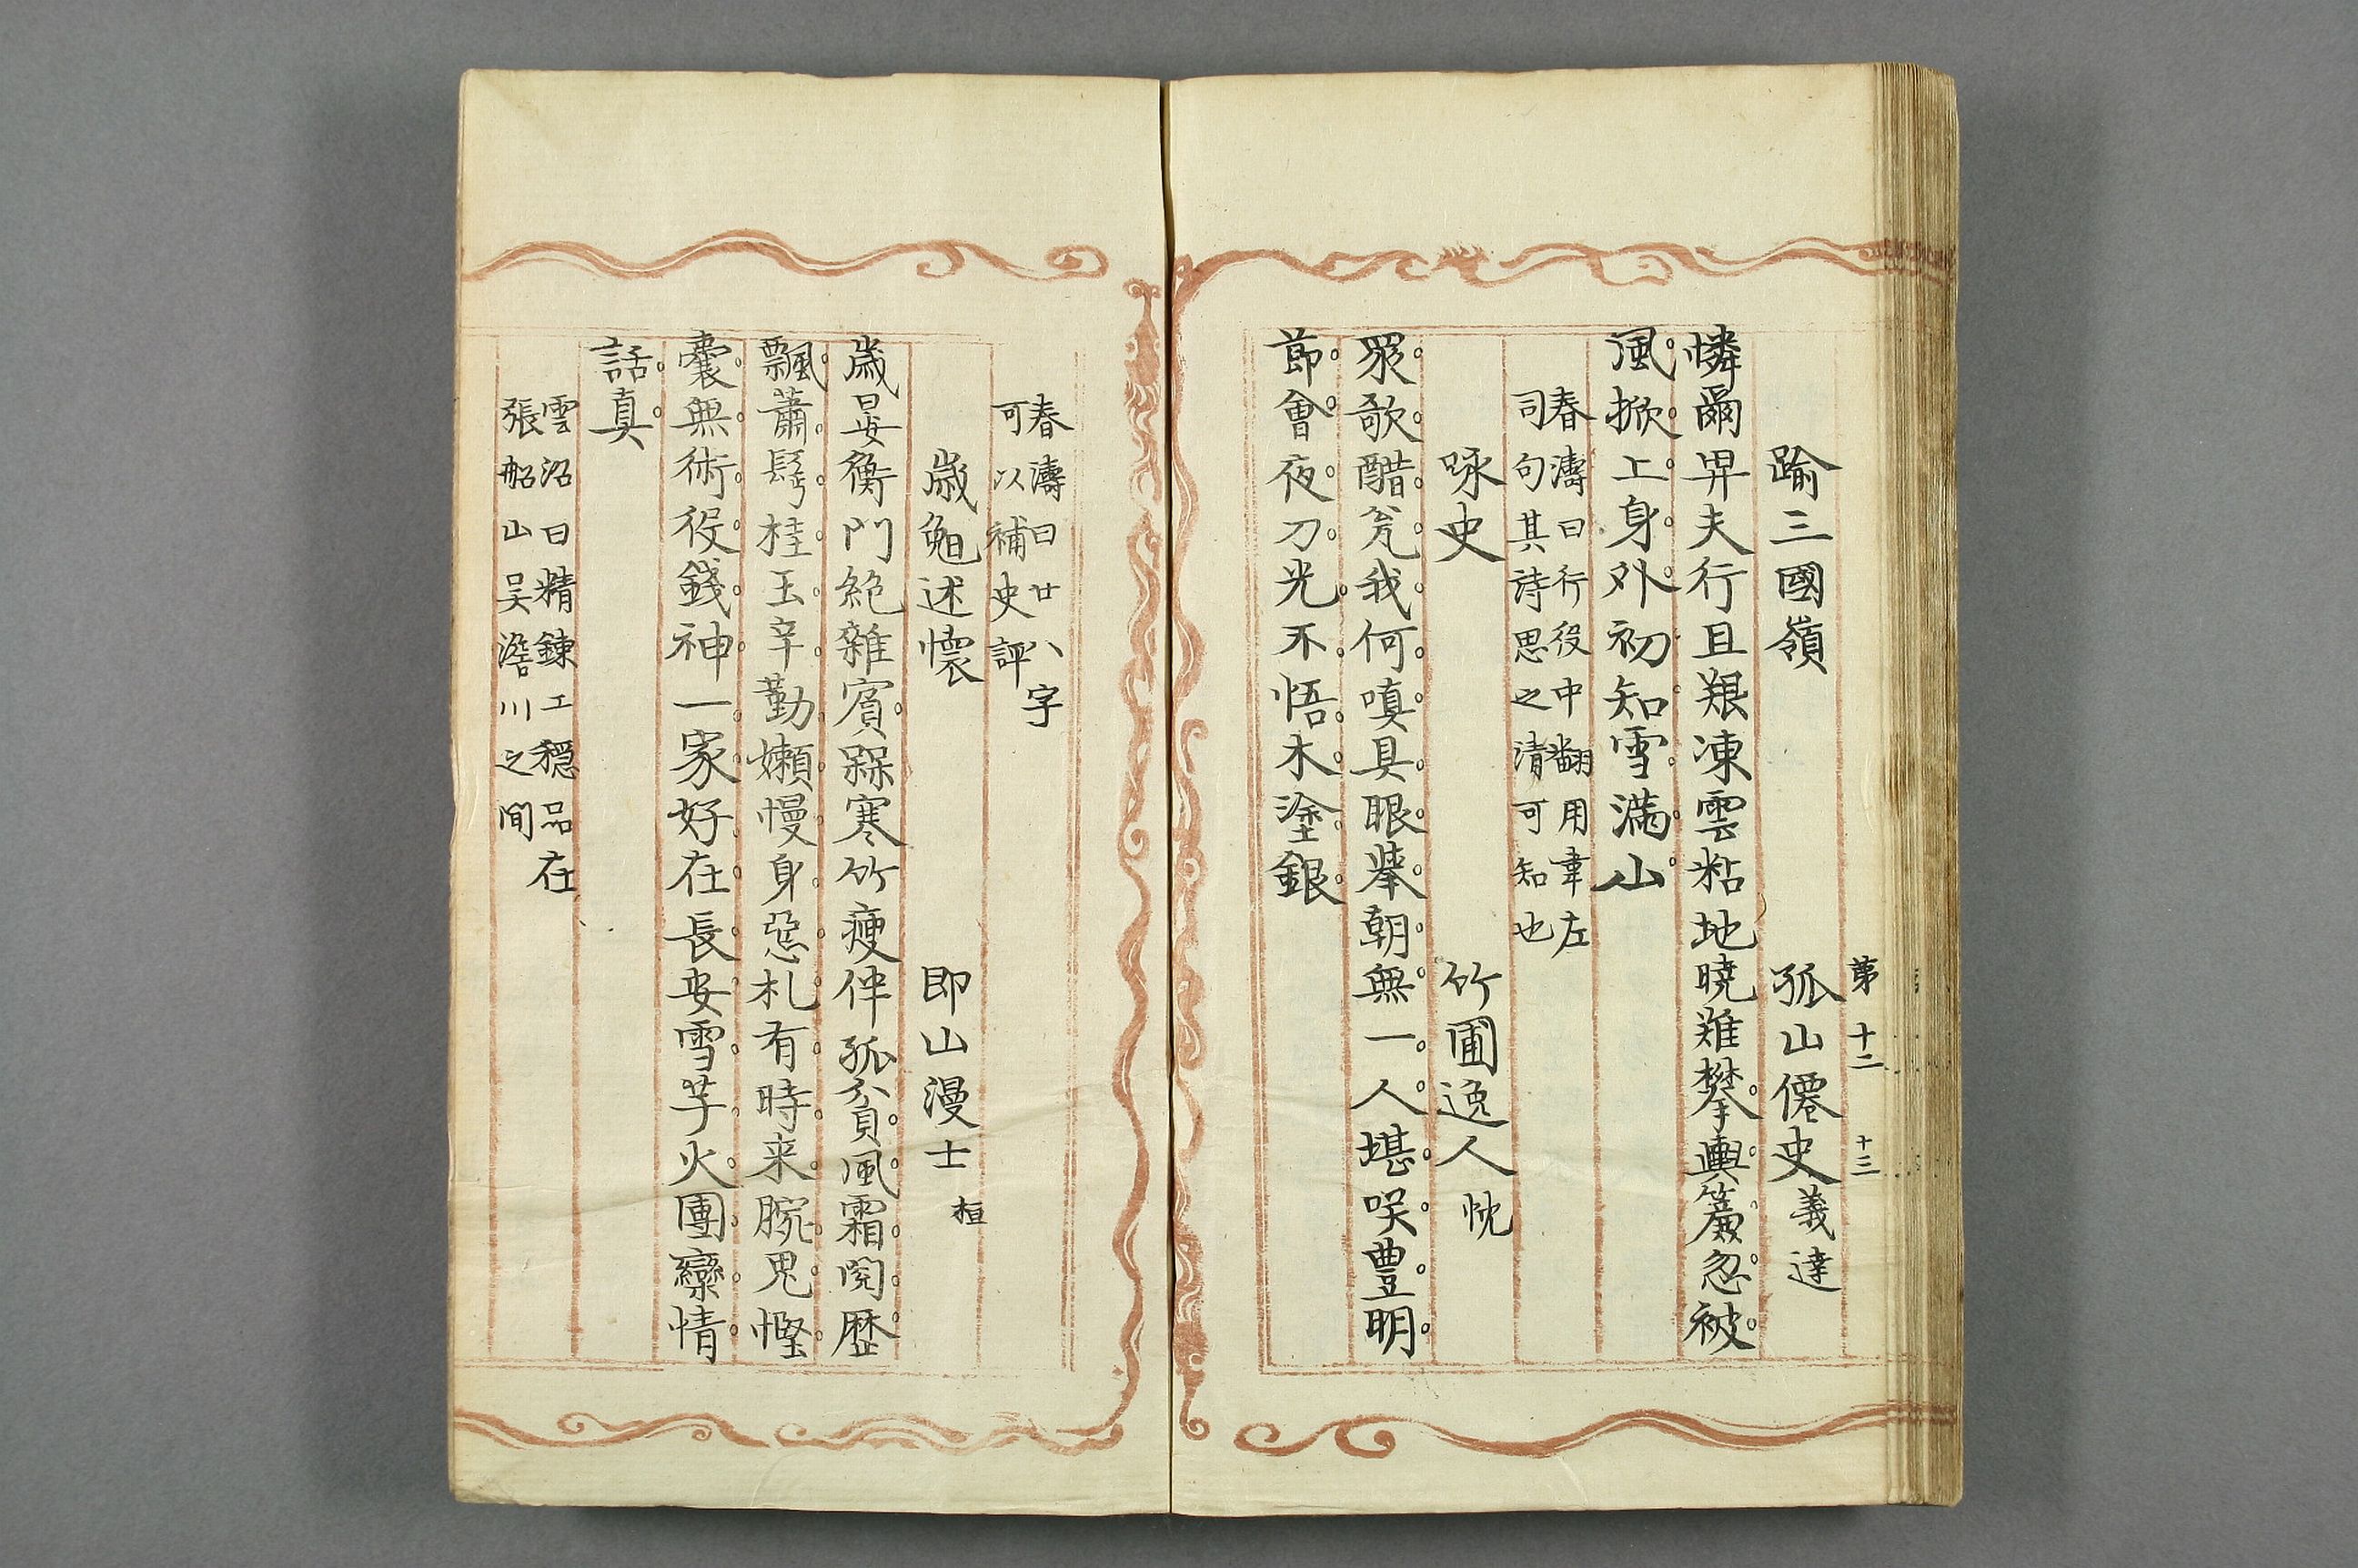 第十二 十三
踰三國嶺 孤山僊史 義達
憐爾舁夫行且艱凍雲粘地曉難攀輿簾忽被
風掀上身外初知雪滿山
春濤曰行役中翻用韋左
司句其詩思之清可知也
咏史 竹圃逸人 忱
眾歌醋瓮我何嗔具眼舉朝無一人堪咲豊明
節會夜刀光不悟木塗銀
春濤曰廿八字
可以補史評
歳晩述懷 即山漫士 桓
歳晏衡門絶雜賓槑寒竹瘦伴孤貧風霜閲歷
飄蕭鬂桂玉辛勤嬾慢身惡札有時来腕鬼慳
囊無術役錢神一家好在長安雪芋火團欒情
話真
雲沼曰精鍊工穏品在
張船山吴澹川之間